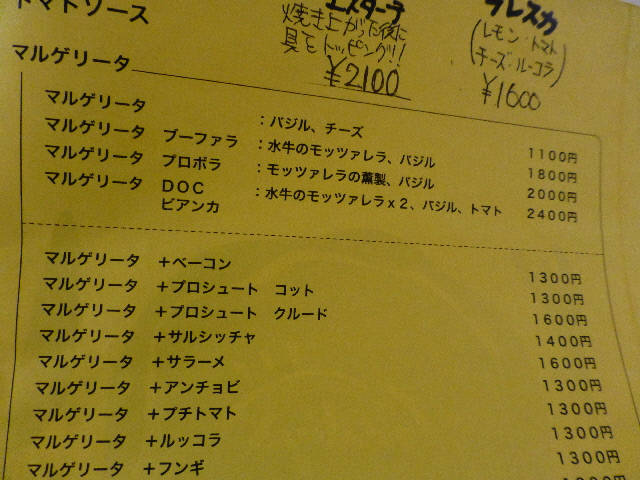 トマトソース
エスターテ
焼き上がった後に
具をトッピング!!
¥2100
フレスカ
(レモン・トマト
チーズ・ルーコラ)
¥1600
マルゲリータ
マルゲリータ :バジル、チーズ 1100円
マルゲリータ ブーファラ :水牛のモッツァレラ、バジル 1800円
マルゲリータ プロボラ :モッツァレラの薫製、バジル 2000円
マルゲリータ DOC :水牛のモッツァレラx2、バジル、トマト 2400円
ビアンカ
マルゲリータ +ベーコン 1300円
マルゲリータ +プロシュート コット 1300円
マルゲリータ +プロシュート クルード 1600円
マルゲリータ +サルシッチャ 1400円
マルゲリータ +サラーメ 1600円
マルゲリータ +アンチョビ 1300円
マルゲリータ +プチトマト 1300円
マルゲリータ +ルッコラ 1300円
マルゲリータ +フンギ 1300円